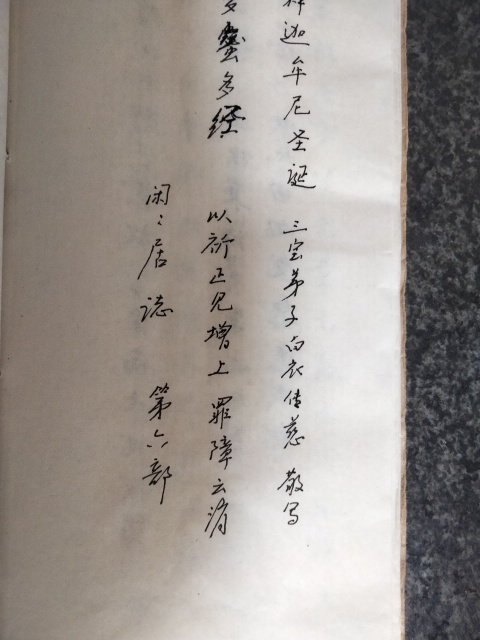 释迦牟尼圣诞 三宝弟子白衣传慈 敬写
多蜜多经 以祈正见增上 罪障云消
闲〻居誌 第六部